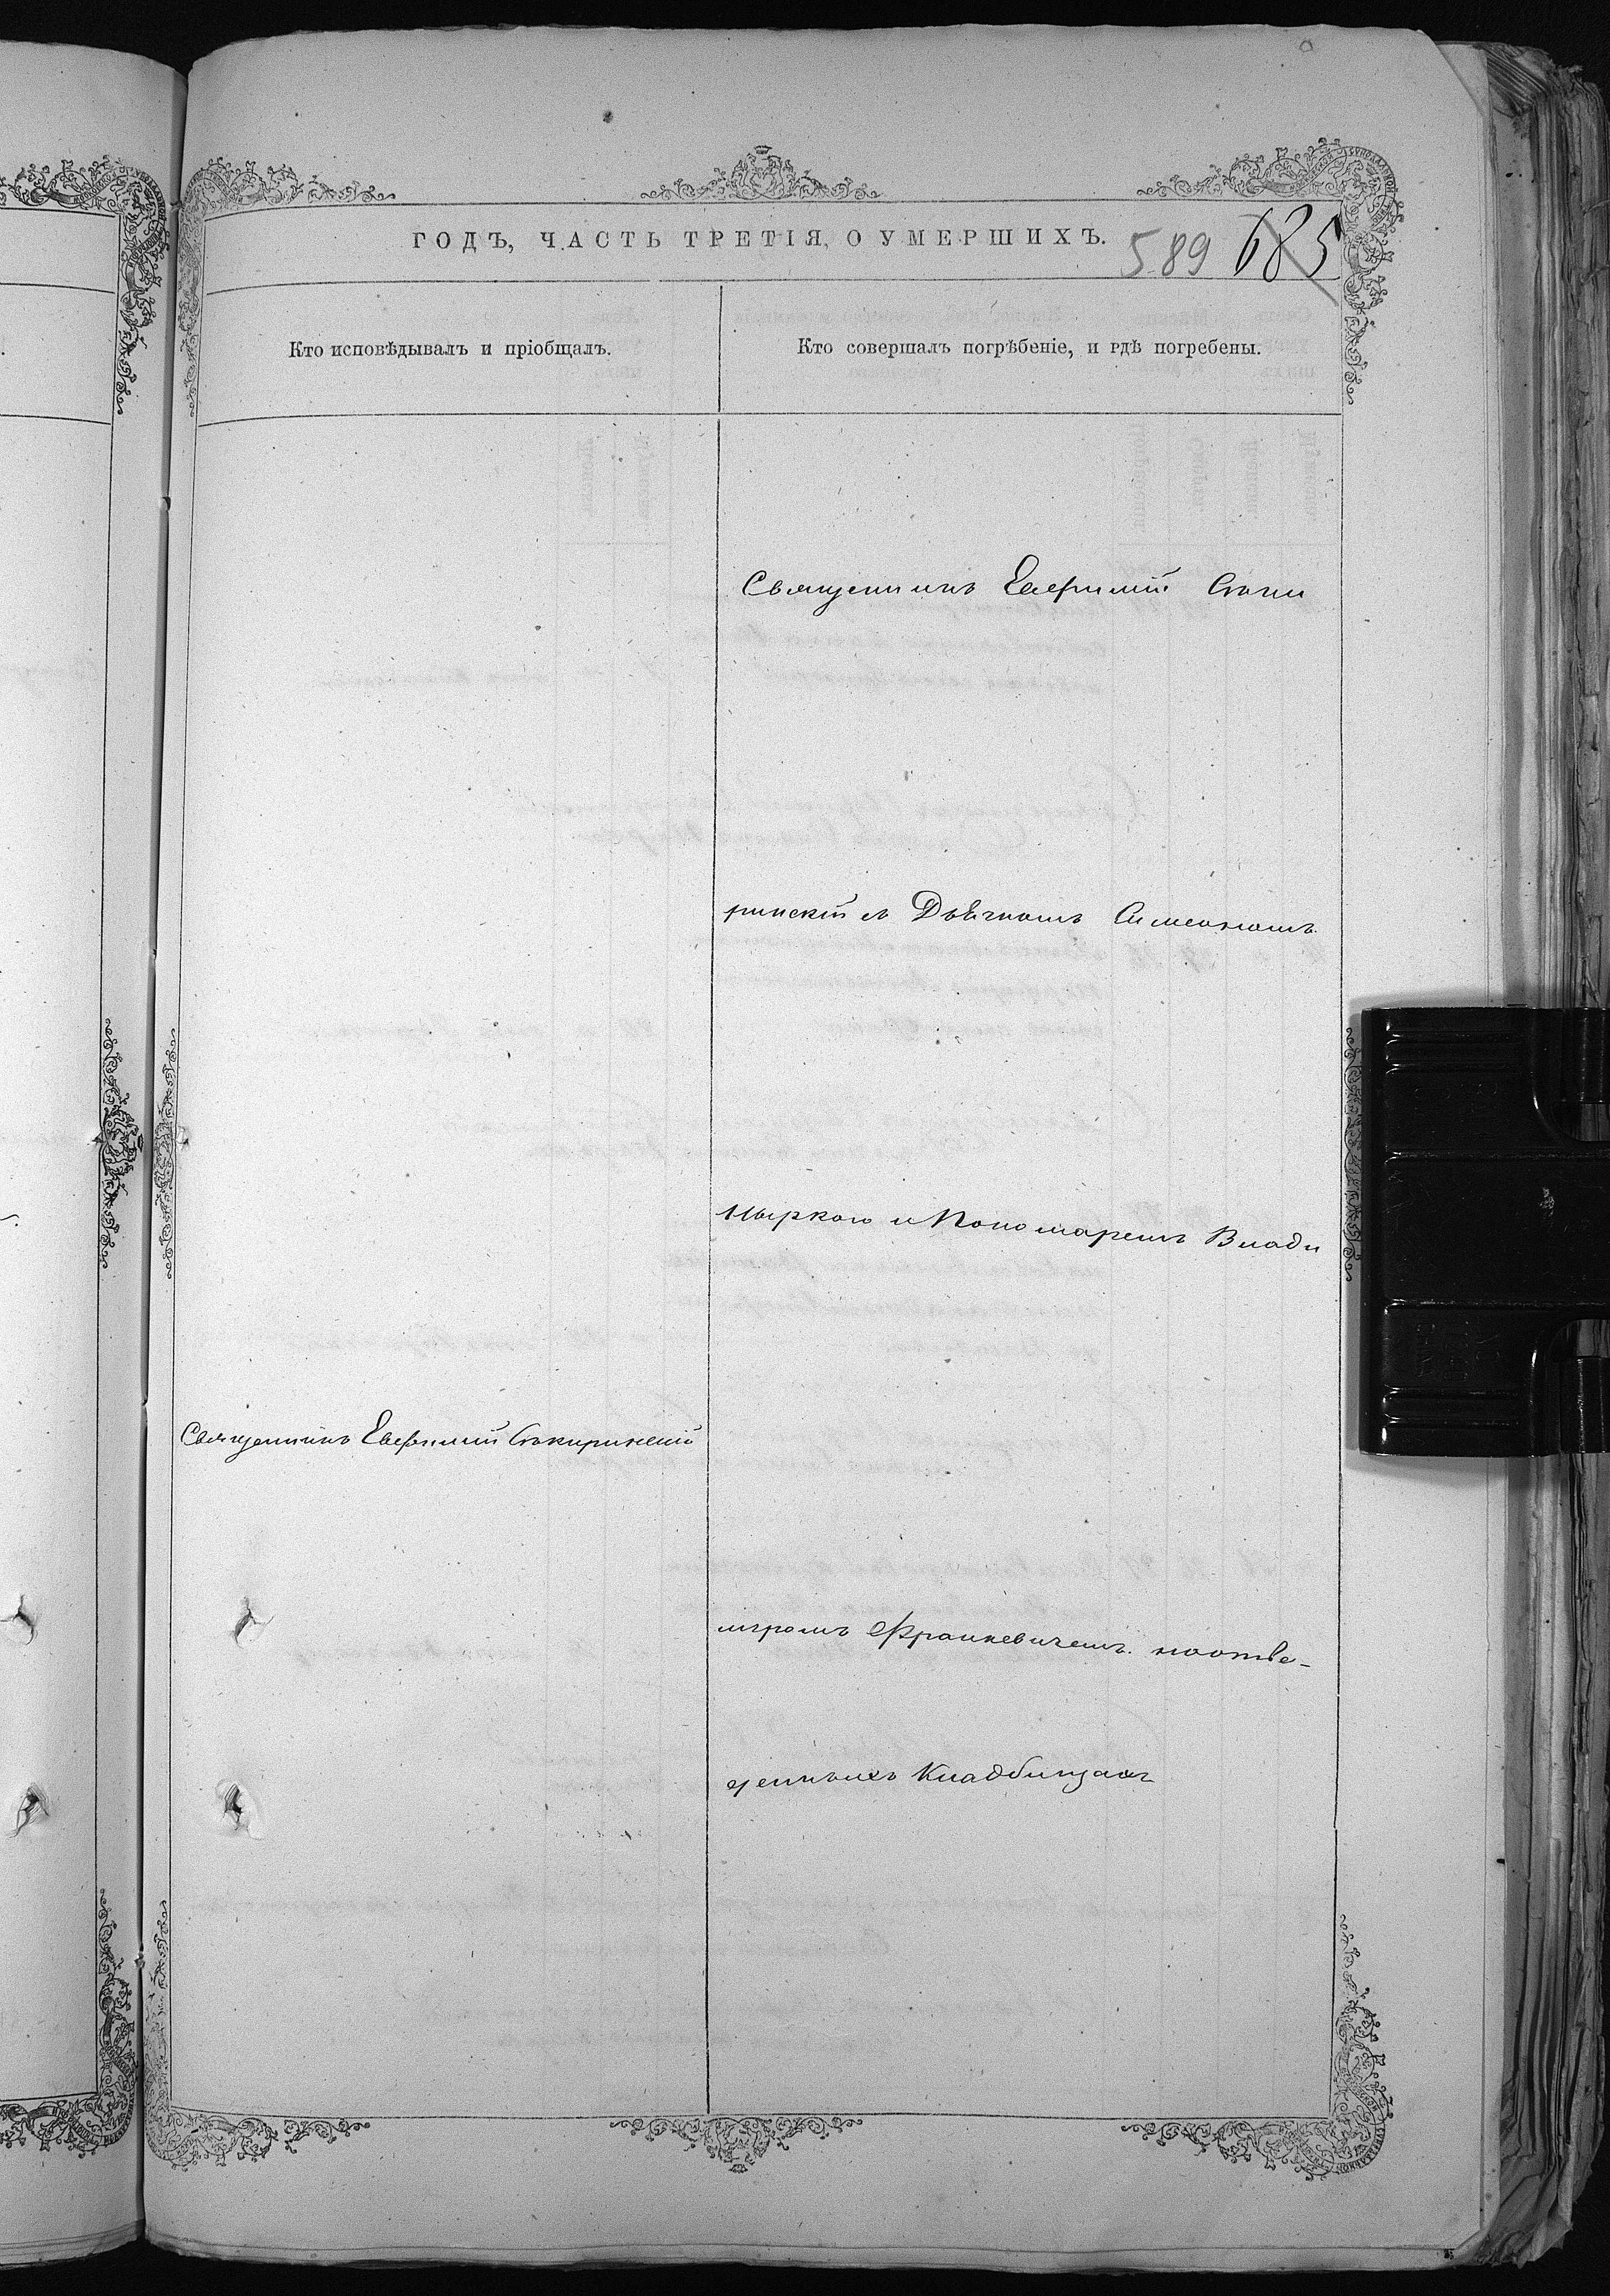 ГОДЪ, ЧАСТЬ ТРЕТІЯ, О УМЕРШИХЪ.
589 685
Кто исповѣдывалъ и пріобщалъ.
Кто совершалъ погрѣбеніе, и гдѣ погребены.
Священникъ Евфимій Сѣки
ринскій съ Дьячкомъ Симеономъ
и Пономаремъ Влади
Священникъ Евфимій Сѣкиринскій
міромъ Франкевичемъ. на отве-
денныхъ Кладбищахъ